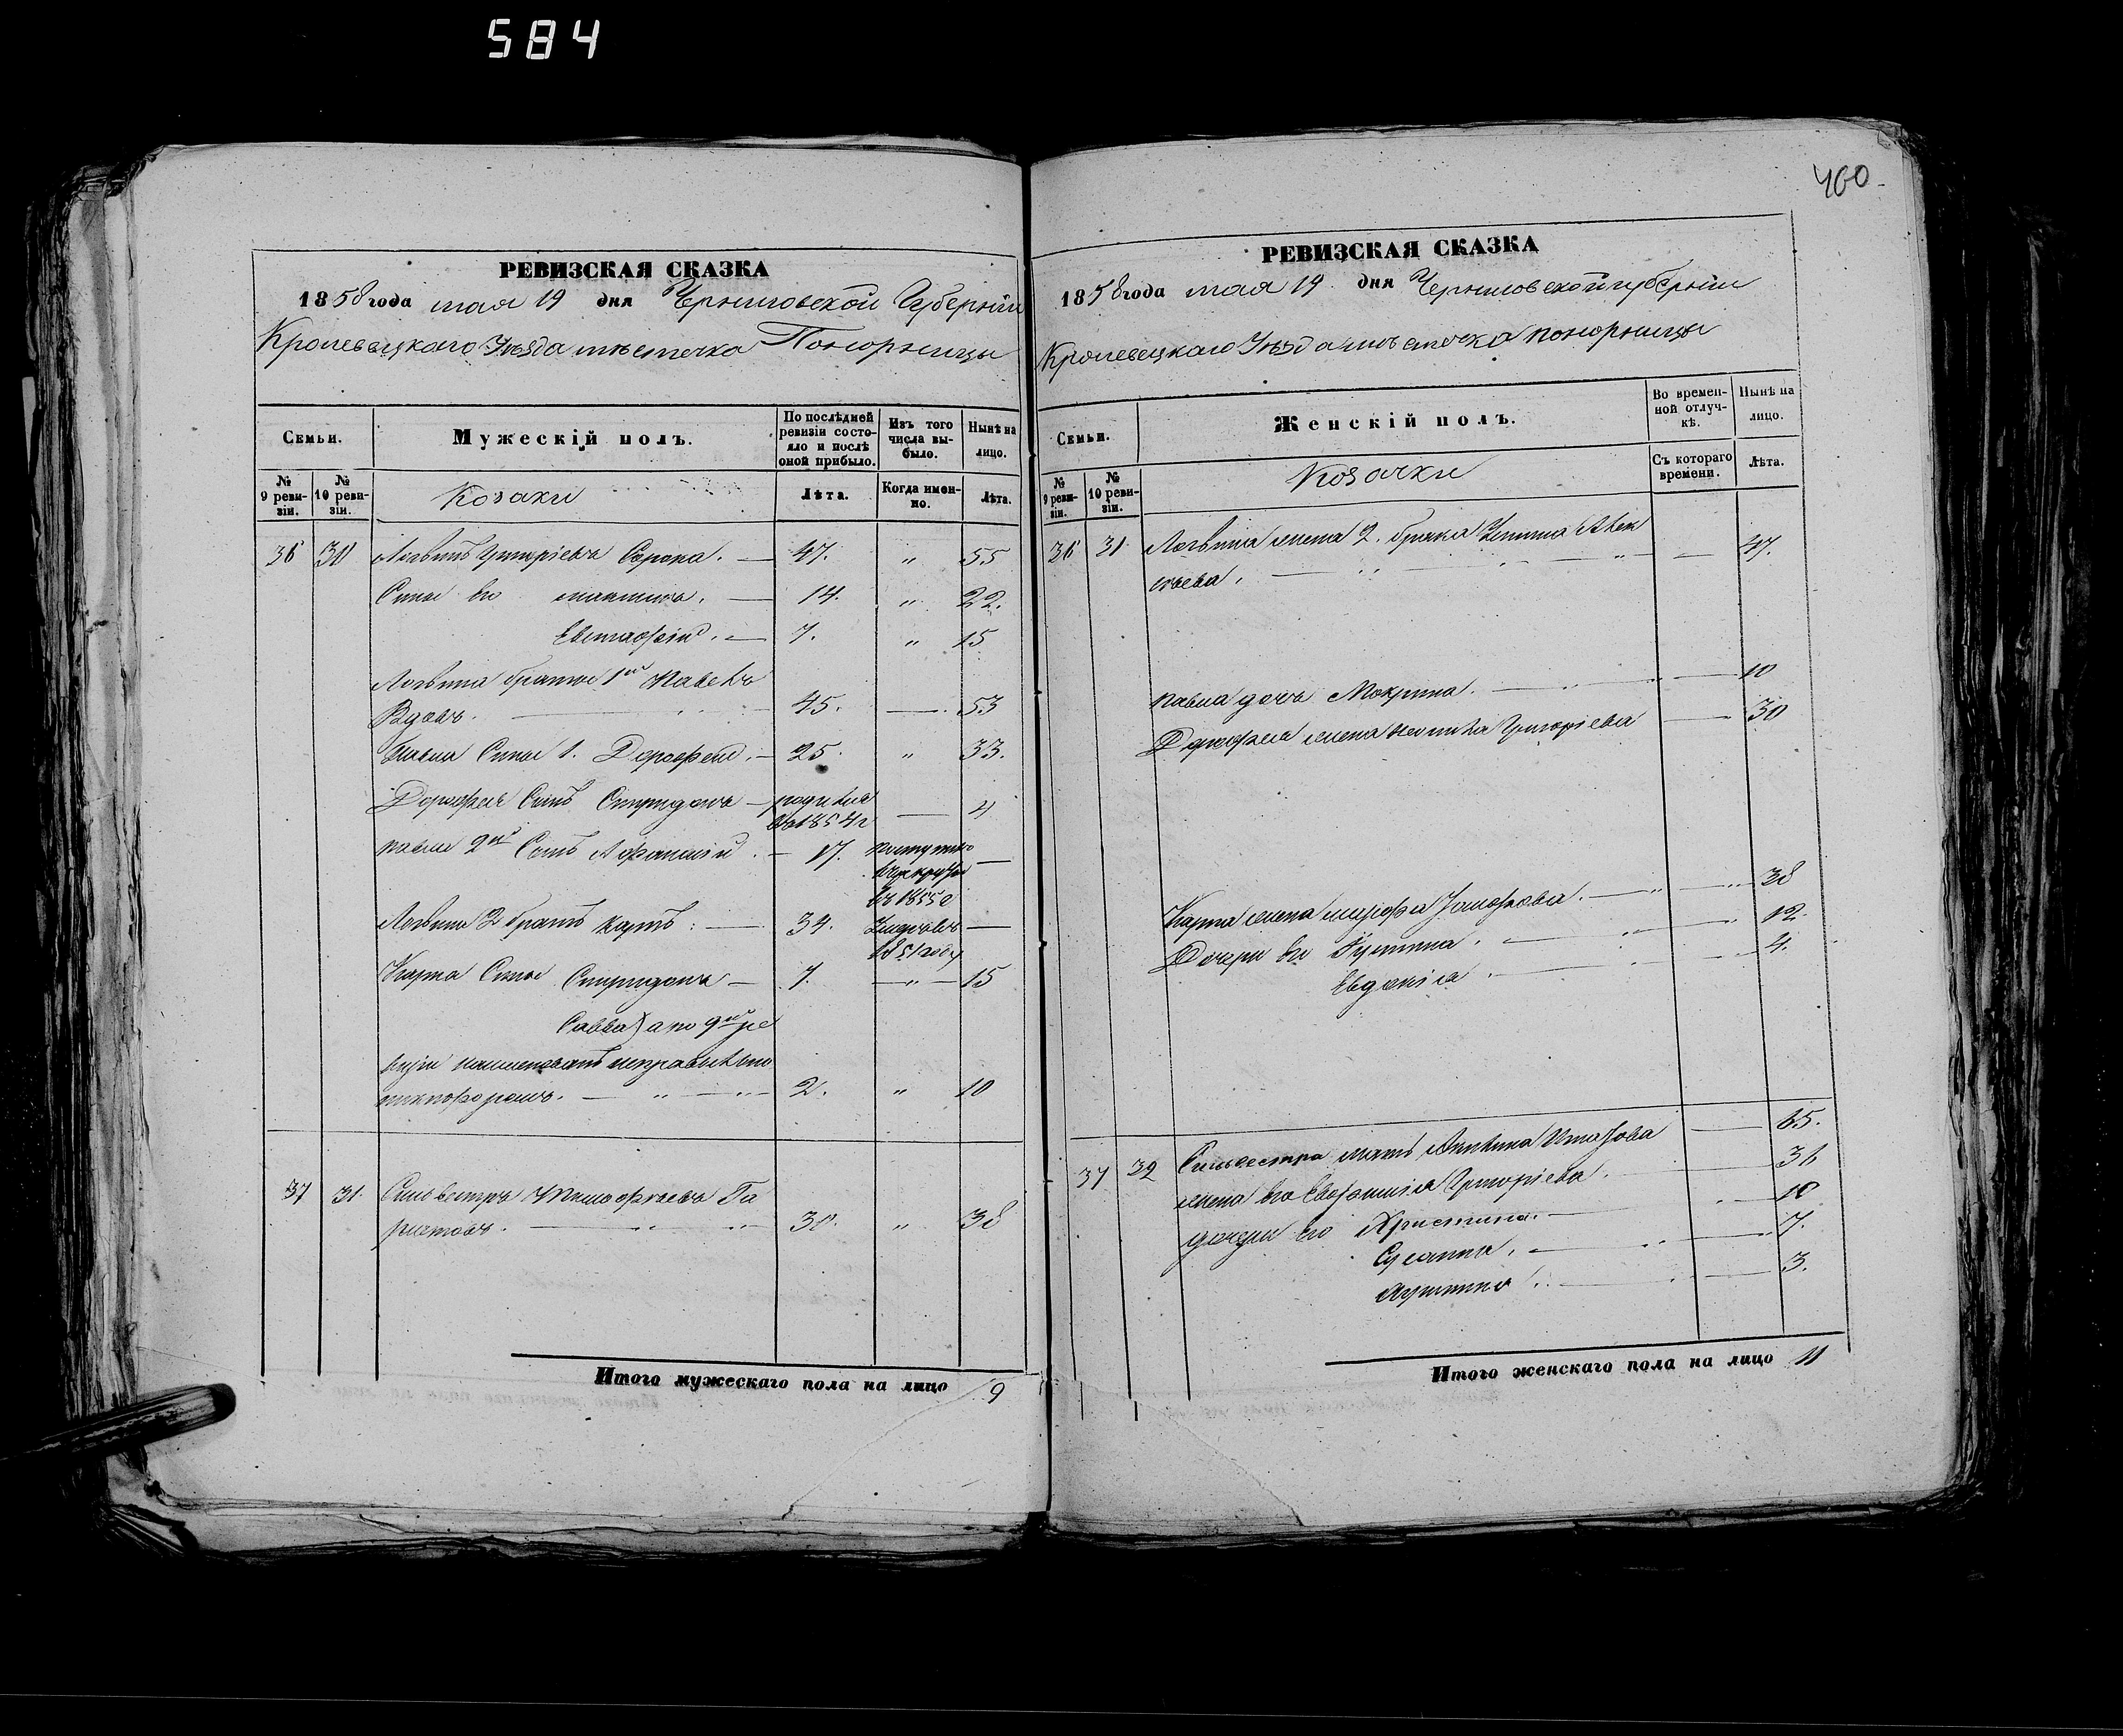 584
400
РЕВИЗСКАЯ СКАЗКА
1858 года мая 19 дня Черниговской Губерніи
Кролевецкаго Уезда местечка Понорницы
Семьи.
Мужескій полъ.
По послѣдней ревизіи состояло и послѣ оной прибыло.
Изъ того числа выбыло.
Нынѣ на лицо.
№ 9 ревизіи.
№ 10 ревизіи.
Козаки
Лѣта.
Когда именно.
Лѣта.
36 30 Логвинъ Сорока. 47. " 55
Сыны его 14. " 22.
Евстафій. 7. " 15
Логвина братья 1й Павелъ
Вдовъ. 45. 53
Павла Сыны 1. Дорофей. 25. " 33.
Дорофея Сынъ Спиридонъ родился
в 1854г 4
Павла 2й Сынъ Афанасій. 17. поступил
в рекруты
въ 1855г
Логвина 2 братъ Карпъ 34. Умеръ въ
1851 году
Карпа Сыны Спиридонъ 7. " 15
Савва) а по 9й ре
визіи неправильно
Никифоромъ. 2. " 10
37 31. Сильвестръ Тимофеевъ
30. " 38
Итого мужескаго пола на лицо 9
РЕВИЗСКАЯ СКАЗКА
1858 года мая 19 дня Черниговской губерніи
Кролевецкаго Уезда местечка Понорницы
Семьи.
Женскій полъ.
Во временной отлучкѣ.
Нынѣ на лицо.
№ 9 ревизіи.
№ 10 ревизіи.
Козачки
Съ котораго времени.
Лѣта.
36 31 Логвина жена 2. брака Алек
сеева. 47.
Павла дочь Мокрина. 10
Дорофея жена Григоріева 30
Карпа жена 38
Дочери его 12.
Евдокія 4.
37 32 Сильвестра мать 65.
жена его Григоріева. 36
дочери его Христина. 10
7.
3.
Итого женскаго пола на лицо 11